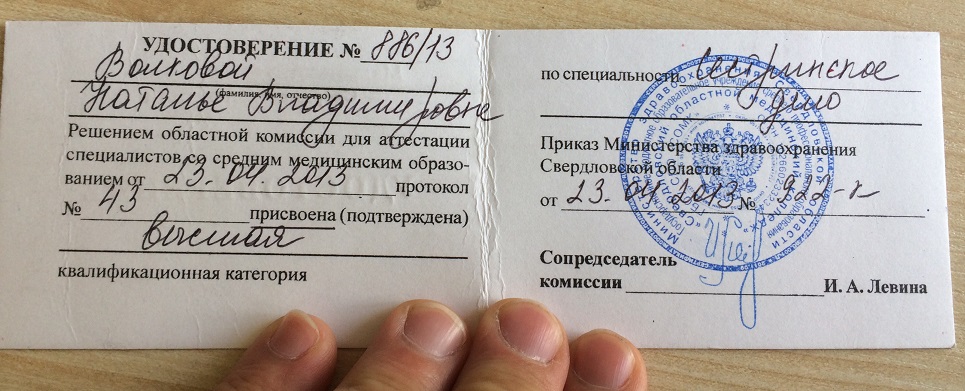 УДОСТОВЕРЕНИЕ № 886/13
Волковой
(фамилия, имя, отчество)
Наталье Владимировне
Решением областной комиссии для аттестации
специалистов со средним медицинским образо-
ванием от 23.04.2013 протокол
№ 43 присвоена (подтверждена)
высшая
квалификационная категория
по специальности Сестринское
дело
Приказ Министерства здравоохранения
Свердловской области
от 23.04.2013 № 922-к
Сопредседатель
комиссии И. А. Левина